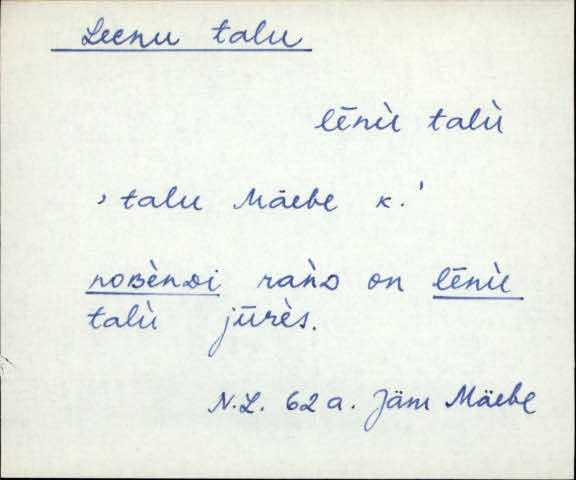 Leenu talu
lēnù talù
, talu Mäebe k.'
noʙènᴅi rańᴅ on lēnù
talù jūrès.
N.L. 62 a. Jäm Mäebe